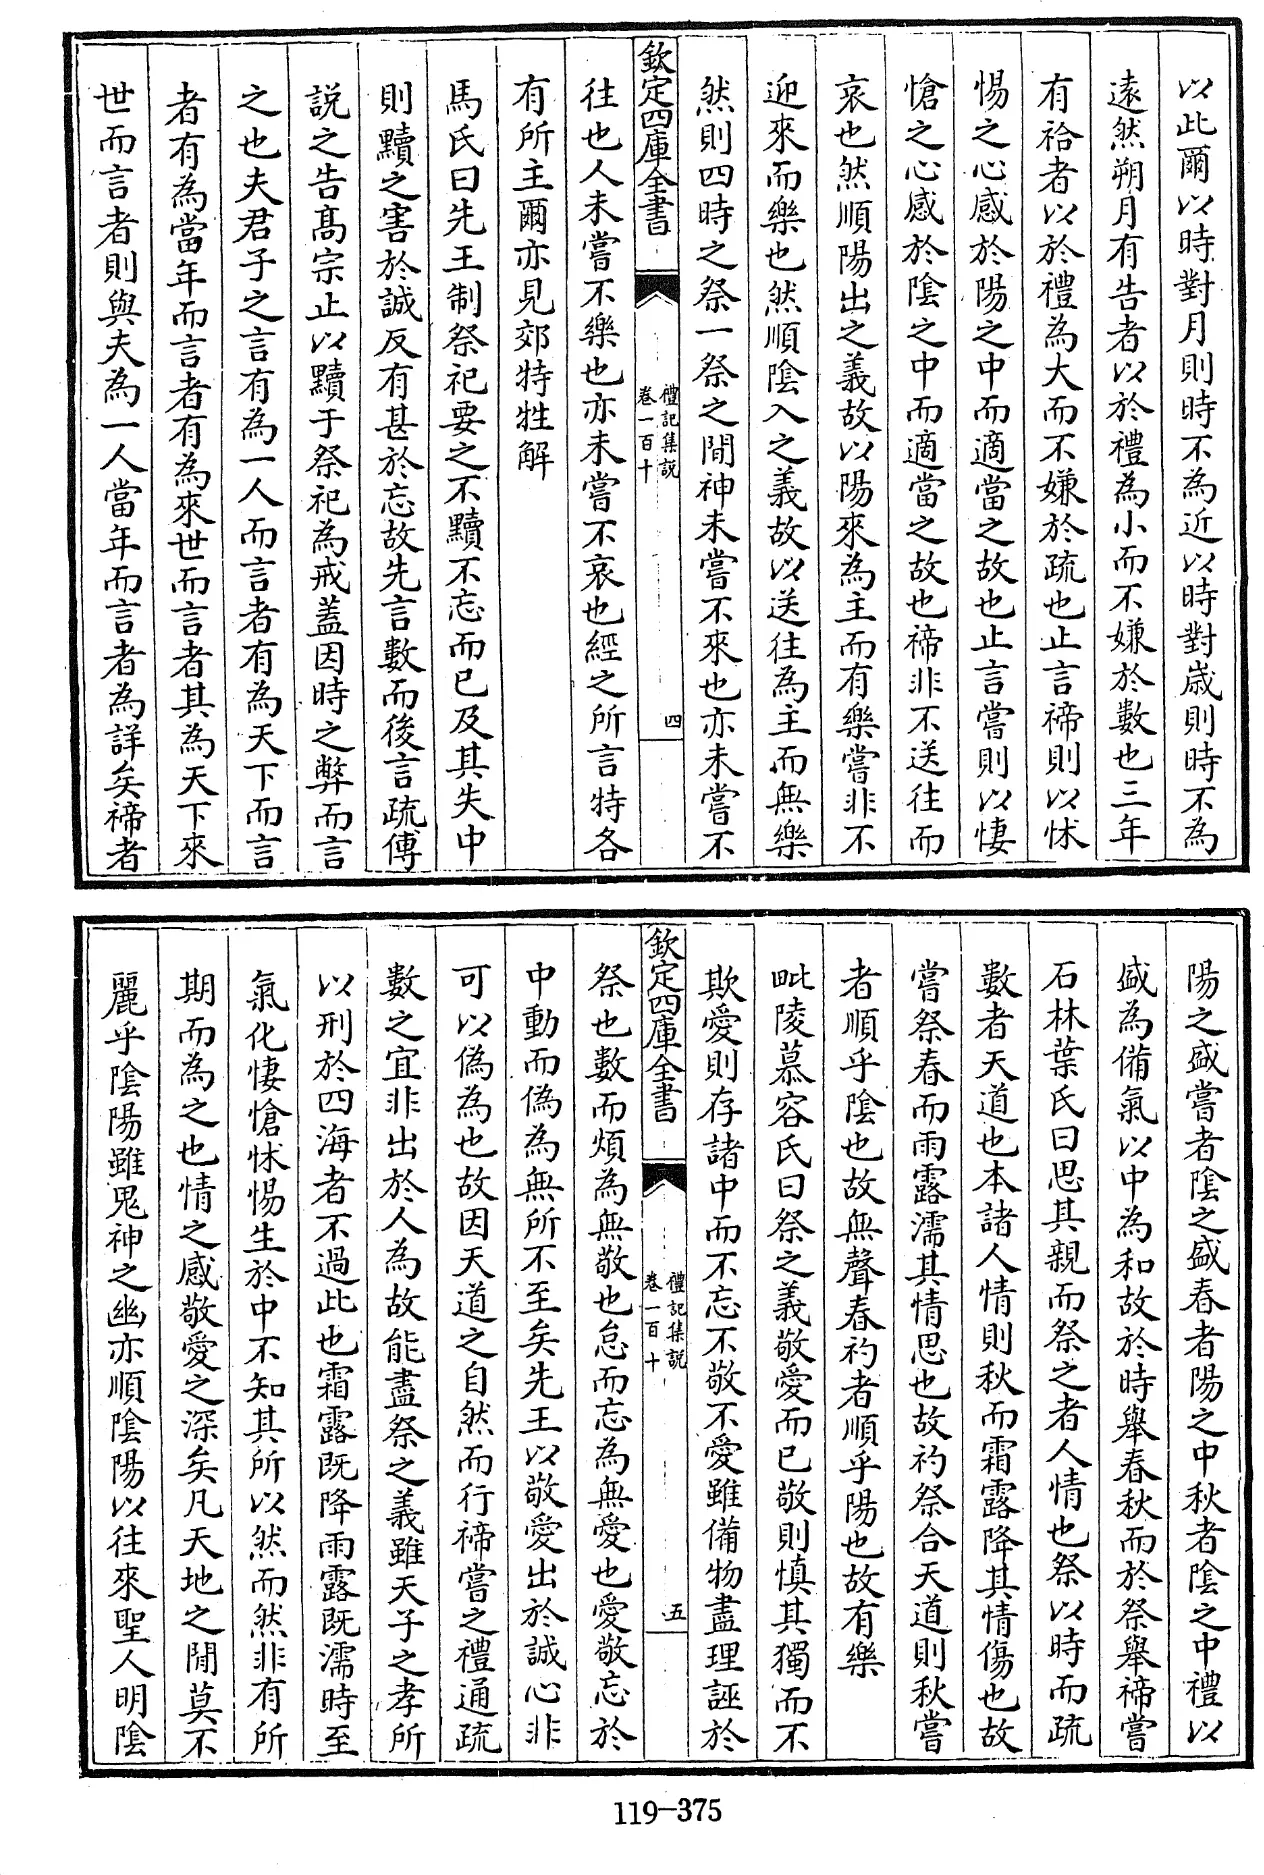 以此爾以時對月則時不為近以時對嵗則時不為
逺然朔月有告者以於禮為小而不嫌於數也三年
有祫者以於禮為大而不嫌於疏也止言禘則以怵
惕之心感於陽之中而適當之故也止言嘗則以悽
愴之心感於陰之中而適當之故也禘非不送往而
哀也然順陽出之義故以陽來為主而有樂嘗非不
迎來而樂也然順陰入之義故以送往為主而無樂
然則四時之祭一祭之間神未嘗不來也亦未嘗不
欽定四庫全書
禮記集說
卷一百十
四
往也人未嘗不樂也亦未嘗不哀也經之所言特各
有所主爾亦見郊特牲解
馬氏曰先王制祭祀要之不黷不忘而已及其失中
則黷之害於誠反有甚於忘故先言數而後言疏傅
說之告髙宗止以黷于祭祀為戒蓋因時之弊而言
之也夫君子之言有為一人而言者有為天下而言
者有為當年而言者有為來世而言者其為天下來
世而言者則與夫為一人當年而言者為詳矣禘者
陽之盛嘗者陰之盛春者陽之中秋者陰之中禮以
盛為備氣以中為和故於時舉春秋而於祭舉禘嘗
石林葉氏曰思其親而祭之者人情也祭以時而疏
數者天道也本諸人情則秋而霜露降其情傷也故
嘗祭春而雨露濡其情思也故礿祭合天道則秋嘗
者順乎陰也故無聲春礿者順乎陽也故有樂
毗陵慕容氏曰祭之義敬愛而已敬則慎其獨而不
欺愛則存諸中而不忘不敬不愛雖備物盡理誣於
欽定四庫全書
禮記集說
卷一百十
五
祭也數而煩為無敬也怠而忘為無愛也愛敬忘於
中動而偽為無所不至矣先王以敬愛出於誠心非
可以偽為也故因天道之自然而行禘嘗之禮通疏
數之宜非出於人為故能盡祭之義雖天子之孝所
以刑於四海者不過此也霜露既降雨露既濡時至
氣化悽愴怵惕生於中不知其所以然而然非有所
期而為之也情之感敬愛之深矣凡天地之間莫不
麗乎陰陽雖鬼神之幽亦順陰陽以往來聖人明陰
119-375